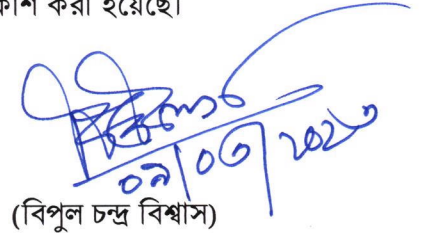 কাশ করা হয়েছে।
০৯/০৩/২০২৩
(বিপুল চন্দ্র বিশ্বাস)